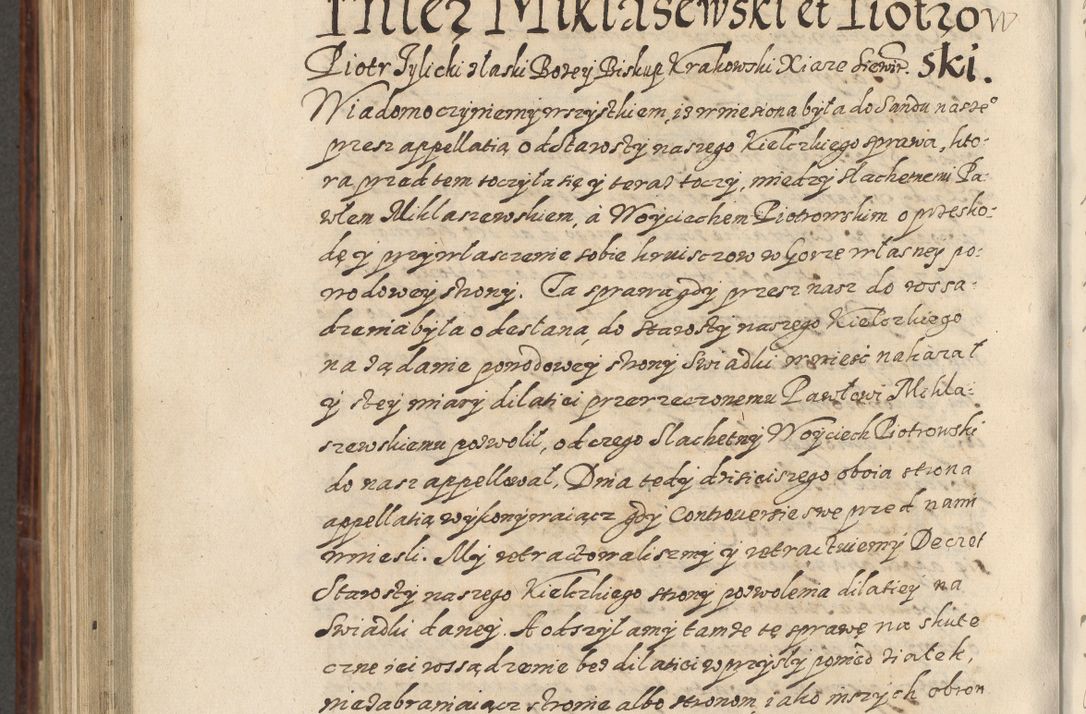 Inter Miklasewski et Piotrow
ski.
Piotr Tylicki z łaski Bozey Biskup Krakowski Xiaze Siewir.
Wiadomo czyniemy wszystkiem, is wniesiona była do Sandu nasze°
przesz appellatią od Starosty naszego Kielczkiego sprawa, kto-
ra przed tem toczyła się y teraz toczy, miedzy slachetnemi Pa-
włem Miklaszewskiem, á Woyciechem Piotrowskim o przesko-
dę y przywłasczenie sobie kruisczow w Gorze własney po-
wodowey strony. Ta sprawa gdy przesz nasz do rossa-
dzenia była odesłana, do Starosty naszego Kielczkiego
na ządanie powodowey strony Swiadki wwieść nakazał
y s tey miary dilatiei przerzeczonemu Pawłowi Mikla-
szewskiemu poswolił, od czego Slachetny Woyciech Piotrowski
do nasz appellował, Dnia tedy dzisieiszego oboia strona
appellatią wykonywaiącz gdy Controuersie swe przed nami
wniesli. My retractowaliszmy y retractuiemy Decret
Starosty naszego Kielczkiego strony poswolenia dilatiey na
Swiadki daney. A odszylamy tamze tę sprawę na skute
czne iei rossądzenie bes dilatiei w przyszły poniedziałek,
niezabraniaiącz stronie albo stronom iako inszych obron